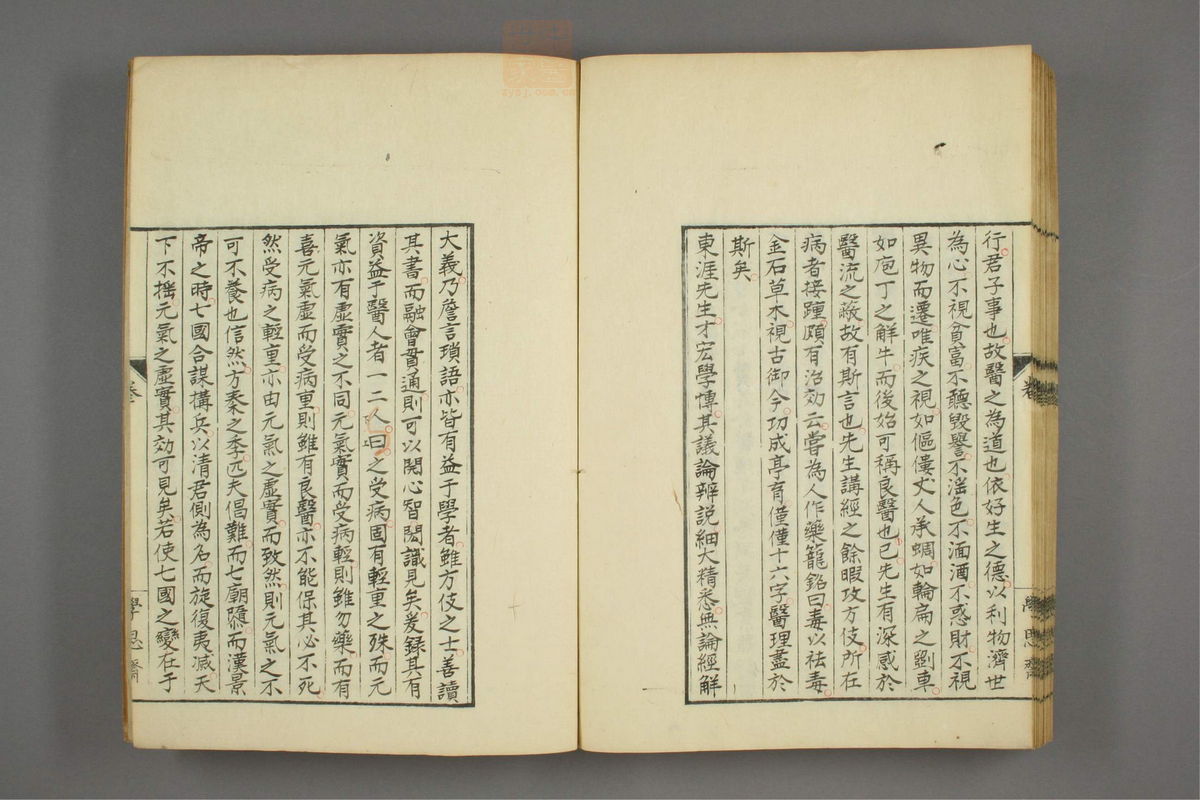 行君子事也故醫之為道也依好生之德以利物濟世
為心不視貧富不聽毀譽不滛色不湎酒不惑財不視
異物而遷唯疾之視如傴僂丈人承蜩如輪扁之斲車
如庖丁之解牛而後始可稱良醫也已先生有深感於
醫流之蔽故有斯言也先生講經之餘暇攻方伎所在
病者接踵頗有治効云嘗為人作藥籠銘曰毒以祛毒
金石草木視古御今功成亭育僅僅十六字醫理盡於
斯矣
東涯先生才宏學博其議論辨説細大精悉無論經解
大義乃詹言瑣語亦皆有益于學者雖方伎之士善讀
其書而融會貫通則可以開心智閎識見矣爰録其有
資益于醫人者一二人曰之受病固有輕重之殊而元
氣亦有虛實之不同元氣實而受病輕則雖勿藥而有
喜元氣虛而受病重則雖有良醫亦不能保其必不死
然受病之輕重亦由元氣之虛實而致然則元氣之不
可不養也信然方秦之季匹夫倡難而七廟隳而漢景
帝之時七國合謀構兵以清君側為名而旋復夷滅天
下不搖元氣之虛實其効可見矣若使七國之變在于
學思齋